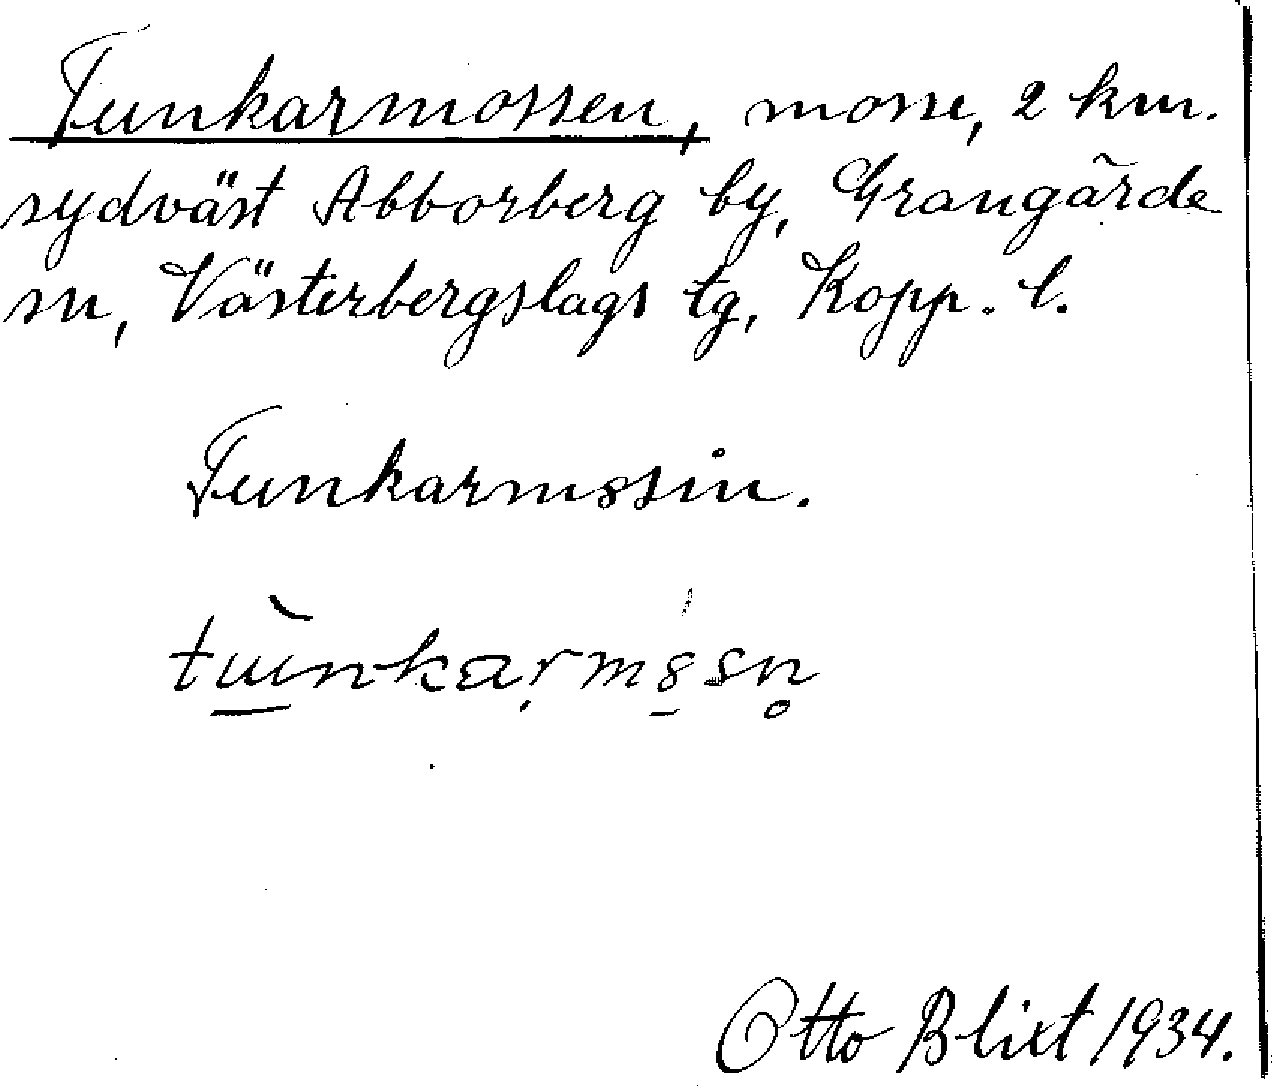 Tunkarmossen, mosse, 2 km.
sydväst Abborberg by, Grangärde
sn, Västerbergslags tg, Kopp. l.
Tunkarmssin.
Otto Blixt 1934.